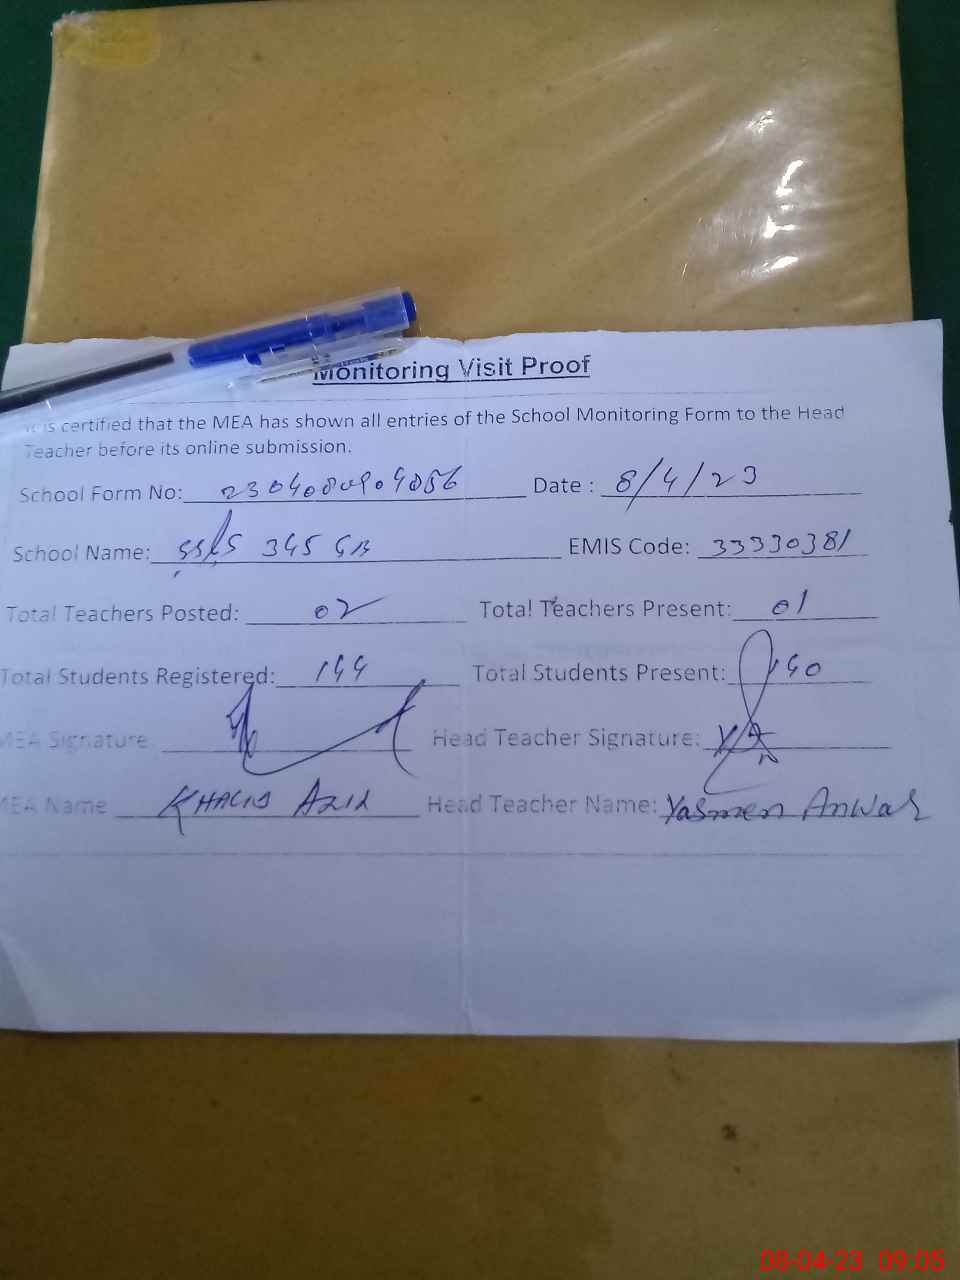 Monitoring Visit Proof
It is certified that the MEA has shown all entries of the School Monitoring Form to the Head
Teacher before its online submission.
School Form No: Date : 8/4/23
School Name: 345 GB EMIS Code: 33330381
Total Teachers Posted: 02 Total Teachers Present: 01
Total Students Registered: 144 Total Students Present: 140
MEA Signature Head Teacher Signature:
MEA Name KHALID AZIZ Head Teacher Name: Yasmeen Anwar
08-04-23 09:05